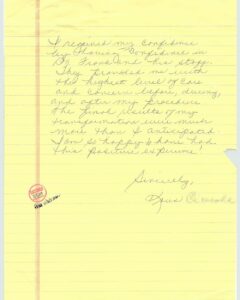 I regained my confidence
by having confidence in
Dr Frank and his staff.
They provided me with
the highest level of care
and concern before, during,
and after my procedure.
The final results of my
transformation were much
more than I anticipated.
I am so happy to have had
this positive experience!
Sincerely,